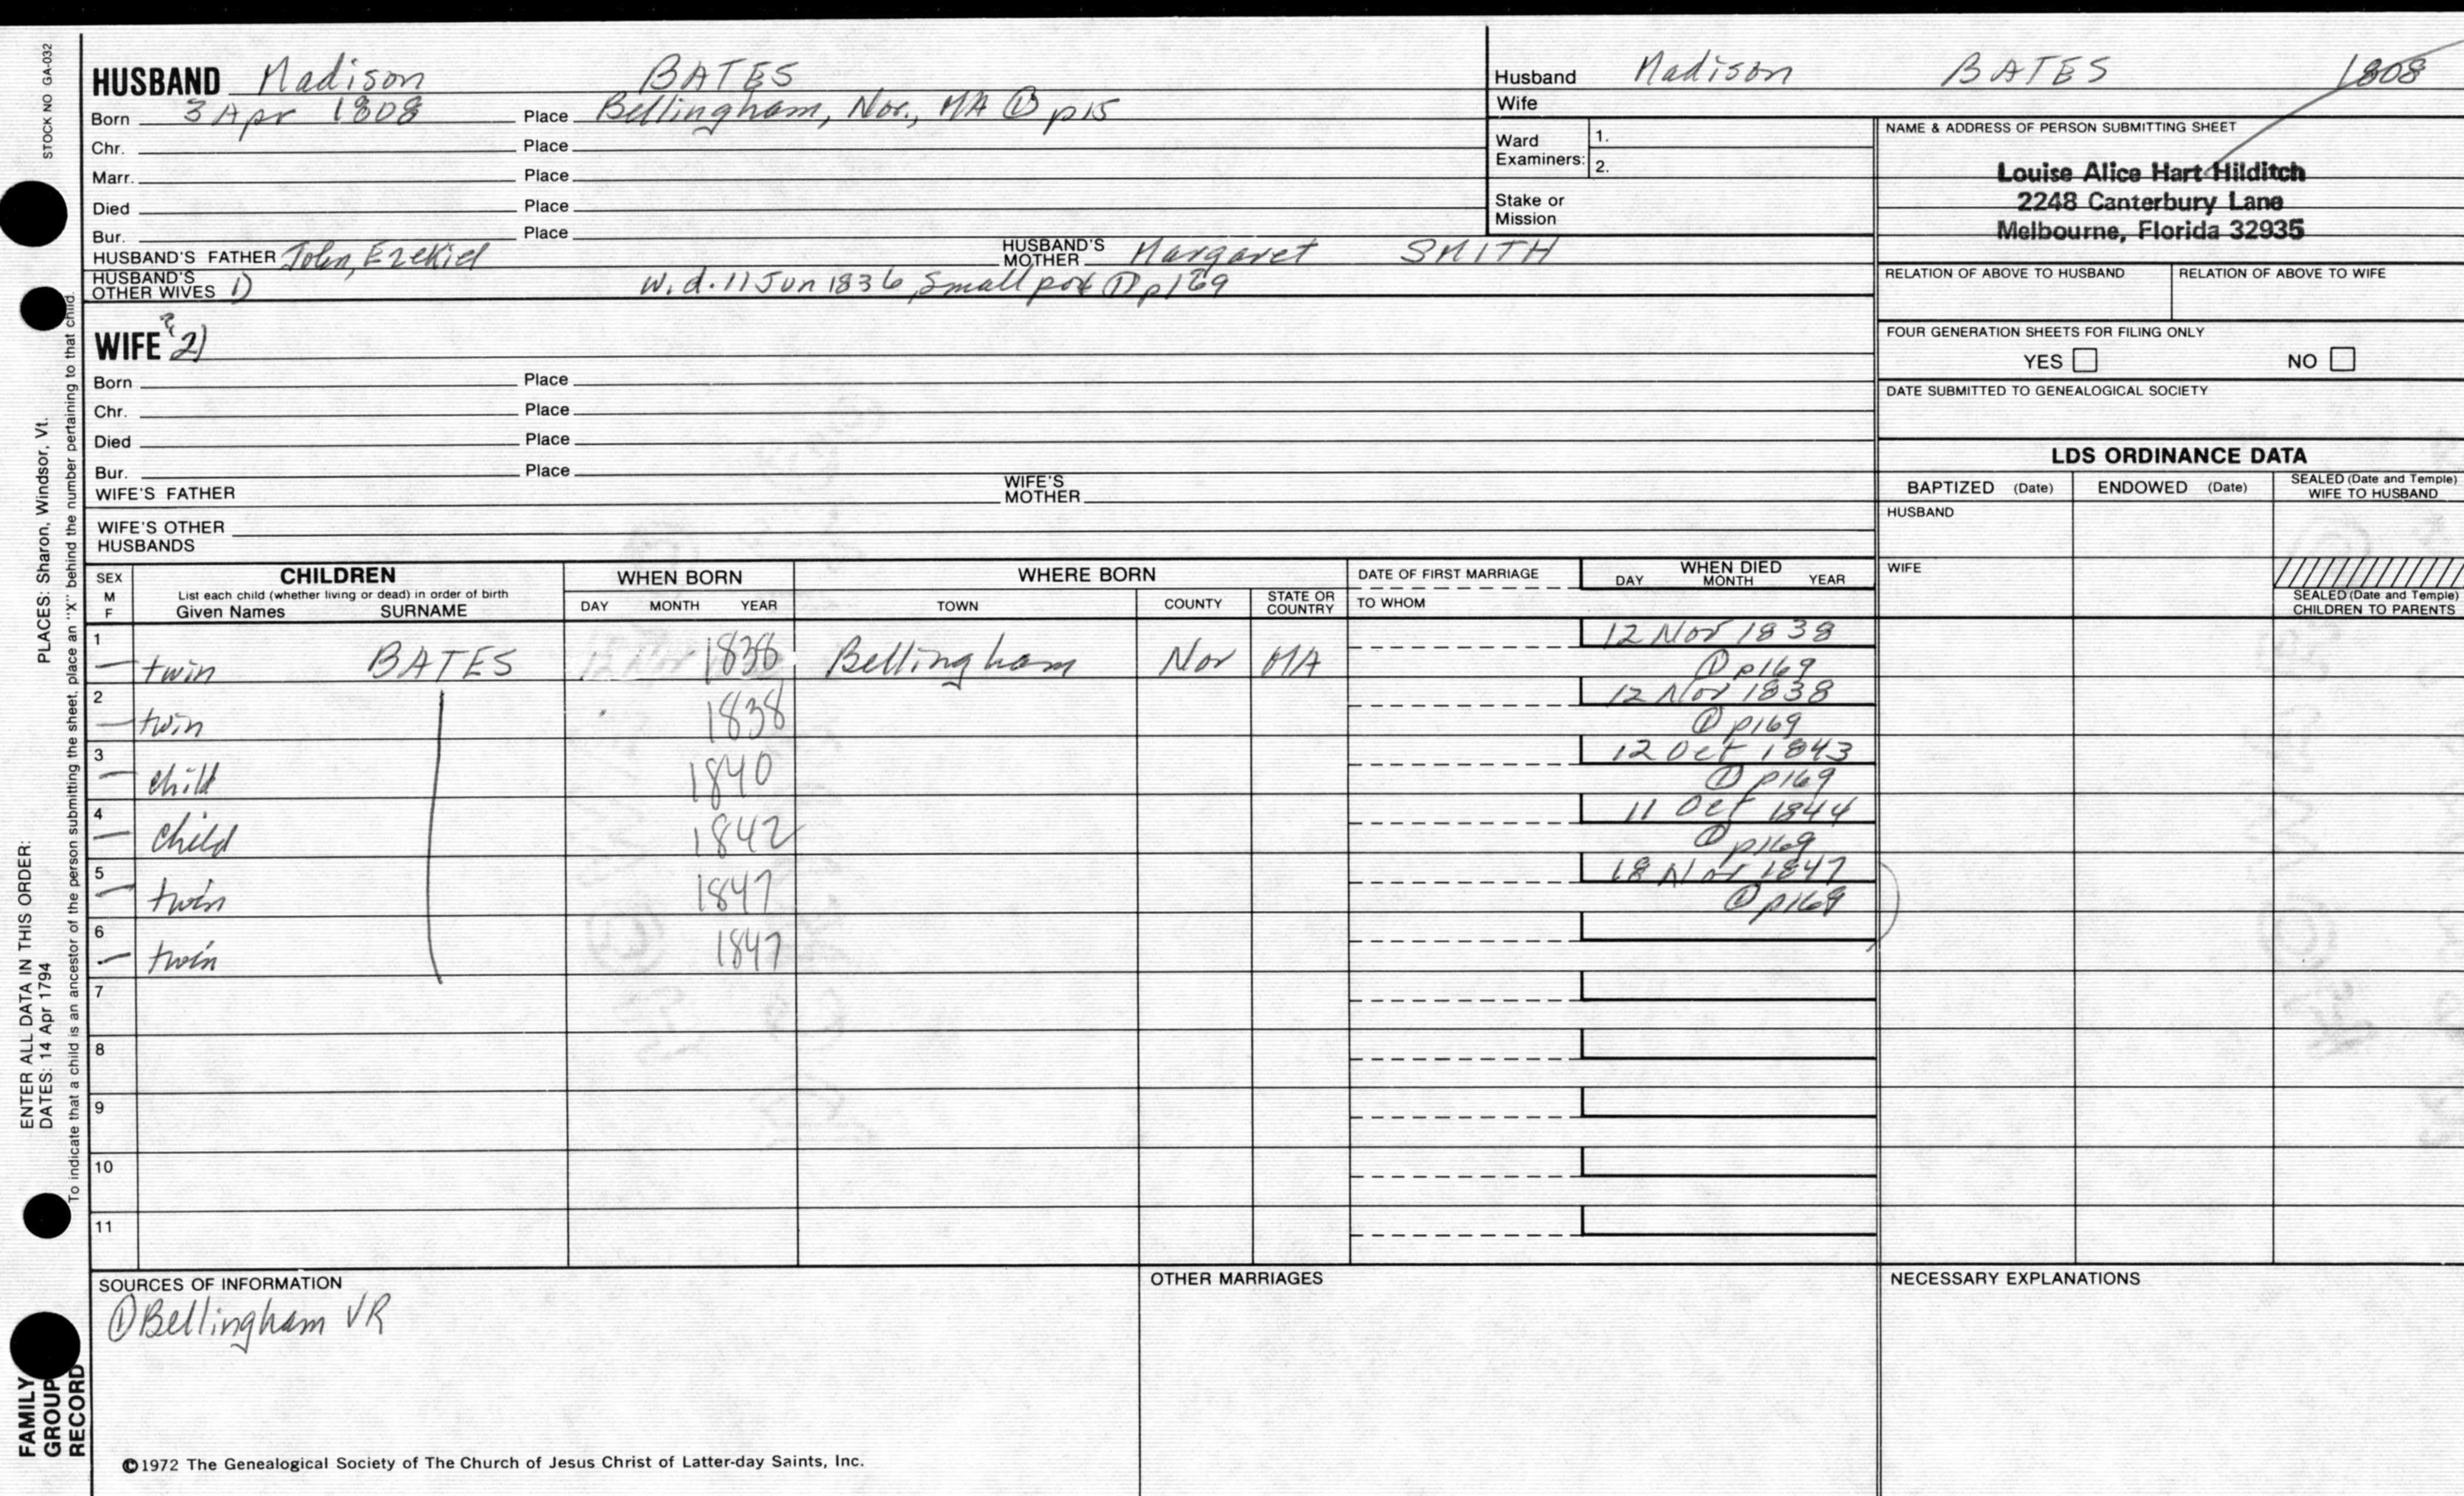 STOCK NO GA-032
HUSBAND Madison BATES
Born 3 Apr 1808 Place Bellingham, Nor., MA ① p15
Chr. Place
Marr. Place
Died Place
Bur. Place
HUSBAND'S FATHER John, Ezekiel HUSBAND'S MOTHER Margaret SMITH
HUSBAND'S OTHER WIVES 1) w. d. 11 Jun 1836, Small pox ① p169
WIFE ? 2)
Born Place
Chr. Place
Died Place
Bur. Place
WIFE'S FATHER WIFE'S MOTHER
WIFE'S OTHER HUSBANDS
Husband Madison BATES 1808
Wife
Ward Examiners: 1.
2.
Stake or Mission
NAME & ADDRESS OF PERSON SUBMITTING SHEET
Louise Alice Hart Hilditch
2248 Canterbury Lane
Melbourne, Florida 32935
RELATION OF ABOVE TO HUSBAND RELATION OF ABOVE TO WIFE
FOUR GENERATION SHEETS FOR FILING ONLY
YES NO
DATE SUBMITTED TO GENEALOGICAL SOCIETY
LDS ORDINANCE DATA
BAPTIZED (Date) ENDOWED (Date) SEALED (Date and Temple) WIFE TO HUSBAND
HUSBAND
WIFE
SEALED (Date and Temple) CHILDREN TO PARENTS
SEX M F
CHILDREN
List each child (whether living or dead) in order of birth
Given Names SURNAME
WHEN BORN
DAY MONTH YEAR
WHERE BORN
TOWN COUNTY STATE OR COUNTRY
DATE OF FIRST MARRIAGE
TO WHOM
WHEN DIED
DAY MONTH YEAR
1 twin BATES 1838 Bellingham Nor MA 12 Nov 1838
① p169
2 twin 1838 12 Nov 1838
① p169
3 child 1840 12 Oct 1843
① p169
4 child 1842 11 Oct 1844
① p169
5 twin 1847 18 Nov 1847
① p169
6 twin 1847
7
8
9
10
11
SOURCES OF INFORMATION
① Bellingham VR
OTHER MARRIAGES
NECESSARY EXPLANATIONS
©1972 The Genealogical Society of The Church of Jesus Christ of Latter-day Saints, Inc.
ENTER ALL DATA IN THIS ORDER:
DATES: 14 Apr 1794 PLACES: Sharon, Windsor, Vt.
To indicate that a child is an ancestor of the person submitting the sheet, place an "X" behind the number pertaining to that child.
FAMILY
GROUP
RECORD